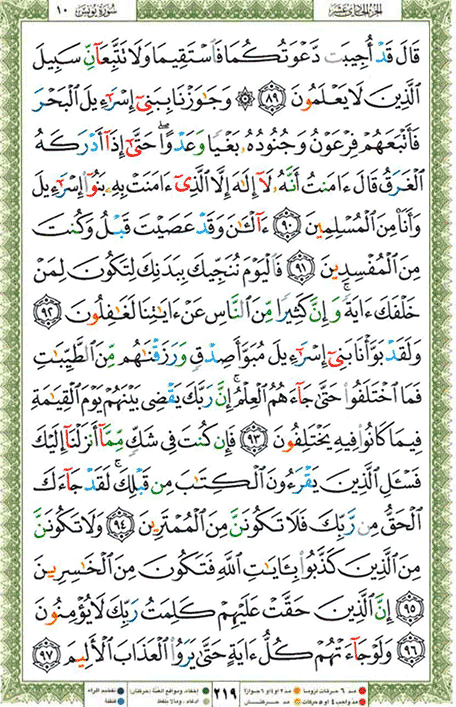 الجزء الحادي عشر سورة يونس ١٠
قَالَ قَدْ أُجِيبَت دَّعْوَتُكُمَا فَٱسْتَقِيمَا وَلَا تَتَّبِعَآنِّ سَبِيلَ
ٱلَّذِينَ لَا يَعْلَمُونَ ٨٩ ۞ وَجَٰوَزْنَا بِبَنِىٓ إِسْرَٰٓءِيلَ ٱلْبَحْرَ
فَأَتْبَعَهُمْ فِرْعَوْنُ وَجُنُودُهُۥ بَغْيًا وَعَدْوًا ۖ حَتَّىٰٓ إِذَآ أَدْرَكَهُ
ٱلْغَرَقُ قَالَ ءَامَنتُ أَنَّهُۥ لَآ إِلَٰهَ إِلَّا ٱلَّذِىٓ ءَامَنَتْ بِهِۦ بَنُوٓا۟ إِسْرَٰٓءِيلَ
وَأَنَا۠ مِنَ ٱلْمُسْلِمِينَ ٩٠ ءَآلْـَٰٔنَ وَقَدْ عَصَيْتَ قَبْلُ وَكُنتَ
مِنَ ٱلْمُفْسِدِينَ ٩١ فَٱلْيَوْمَ نُنَجِّيكَ بِبَدَنِكَ لِتَكُونَ لِمَنْ
خَلْفَكَ ءَايَةً ۚ وَإِنَّ كَثِيرًا مِّنَ ٱلنَّاسِ عَنْ ءَايَٰتِنَا لَغَٰفِلُونَ ٩٢
وَلَقَدْ بَوَّأْنَا بَنِىٓ إِسْرَٰٓءِيلَ مُبَوَّأَ صِدْقٍ وَرَزَقْنَٰهُم مِّنَ ٱلطَّيِّبَٰتِ
فَمَا ٱخْتَلَفُوا۟ حَتَّىٰ جَآءَهُمُ ٱلْعِلْمُ ۚ إِنَّ رَبَّكَ يَقْضِى بَيْنَهُمْ يَوْمَ ٱلْقِيَٰمَةِ
فِيمَا كَانُوا۟ فِيهِ يَخْتَلِفُونَ ٩٣ فَإِن كُنتَ فِى شَكٍّ مِّمَّآ أَنزَلْنَآ إِلَيْكَ
فَسْـَٔلِ ٱلَّذِينَ يَقْرَءُونَ ٱلْكِتَٰبَ مِن قَبْلِكَ ۚ لَقَدْ جَآءَكَ
ٱلْحَقُّ مِن رَّبِّكَ فَلَا تَكُونَنَّ مِنَ ٱلْمُمْتَرِينَ ٩٤ وَلَا تَكُونَنَّ
مِنَ ٱلَّذِينَ كَذَّبُوا۟ بِـَٔايَٰتِ ٱللَّهِ فَتَكُونَ مِنَ ٱلْخَٰسِرِينَ
٩٥ إِنَّ ٱلَّذِينَ حَقَّتْ عَلَيْهِمْ كَلِمَتُ رَبِّكَ لَا يُؤْمِنُونَ
٩٦ وَلَوْ جَآءَتْهُمْ كُلُّ ءَايَةٍ حَتَّىٰ يَرَوُا۟ ٱلْعَذَابَ ٱلْأَلِيمَ ٩٧
مد ٦ حركات لزوماً مد ٢ أو ٤ أو ٦ جوازاً ٢١٩ إخفاء، ومواقع الغنة (حركتان) تفخيم الراء
مد واجب ٤ أو ٥ حركات مد حركتان إدغام، وما لا يلفظ قلقلة